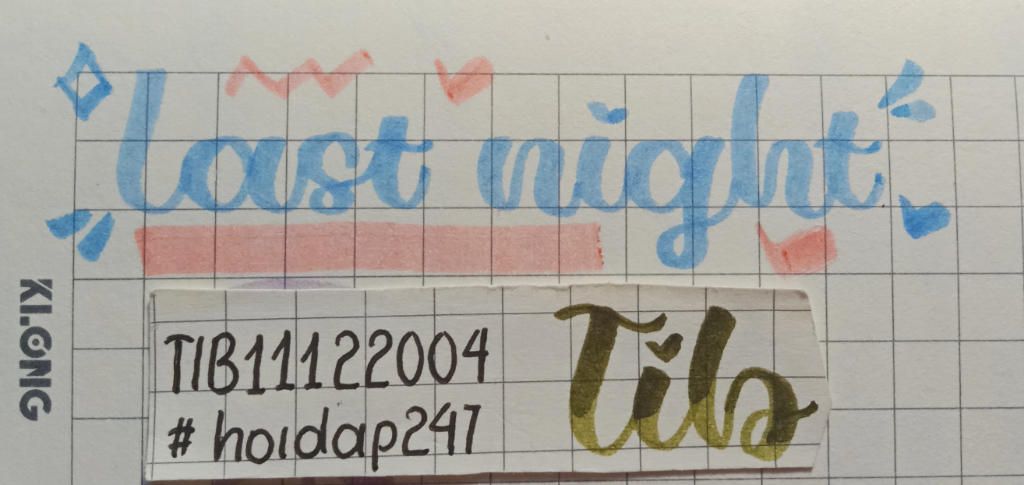 last night
KLONG
TIB11122004
# hoidap247
Tib